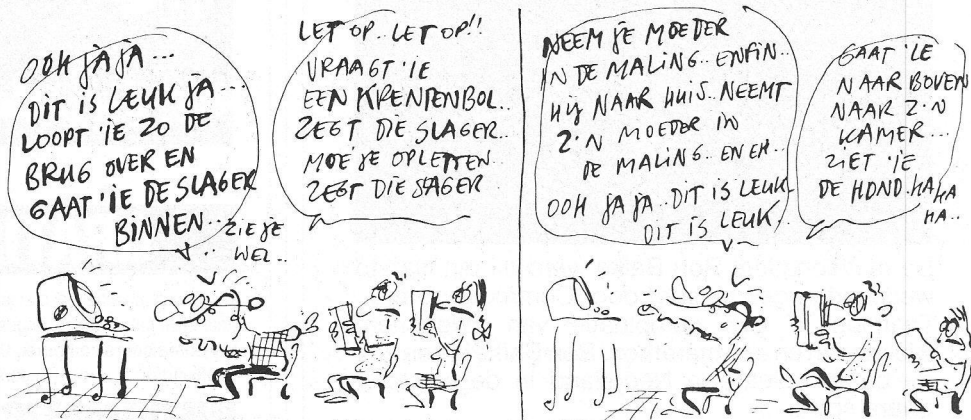 OOH JA JA...
DIT IS LEUK JA...
LOOPT 'IE ZO DE
BRUG OVER EN
GAAT 'IE DE SLAGER
BINNEN...
ZIE JE
WEL..
LET OP.. LET OP!!
VRAAGT 'IE
EEN KRENTENBOL..
ZEGT DIE SLAGER..
MOE'JE OPLETTEN..
ZEGT DIE SLAGER
NEEM JE MOEDER
IN DE MALING.. ENFIN..
HIJ NAAR HUIS.. NEEMT
Z'N MOEDER IN
DE MALING.. EN EH..
OOH JA JA.. DIT IS LEUK..
DIT IS LEUK..
GAAT 'IE
NAAR BOVEN
NAAR Z'N
KAMER...
ZIET 'IE
DE HOND. HA HA
HA..